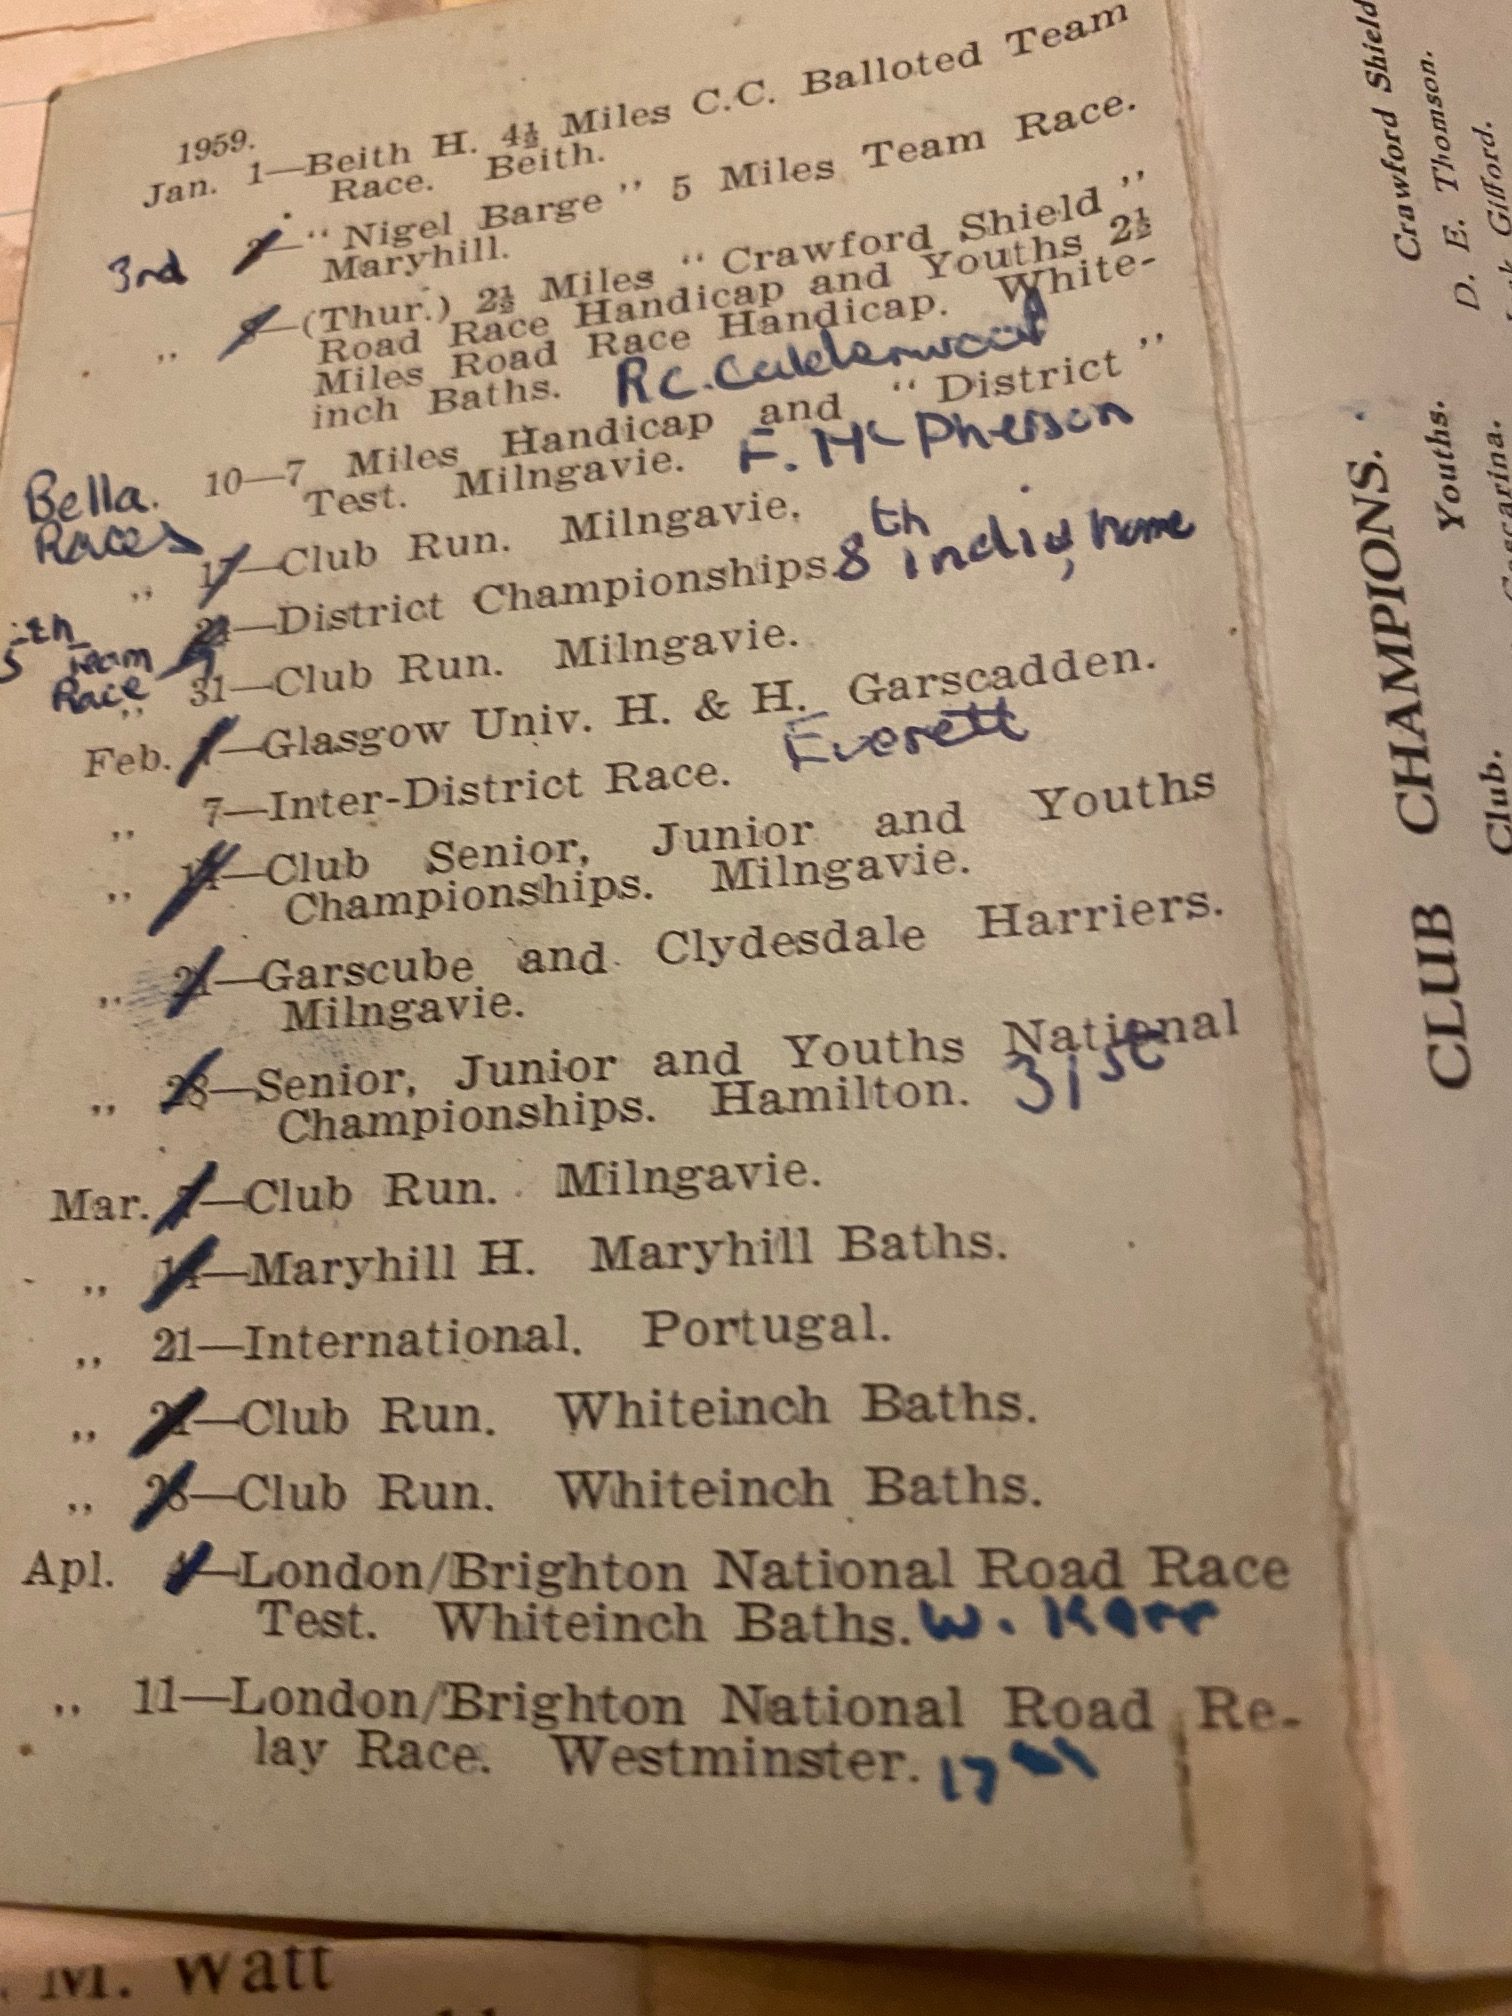 1959.
Jan. 1—Beith H. 4½ Miles C.C. Balloted Team
Race. Beith.
3rd —“Nigel Barge” 5 Miles Team Race.
Maryhill.
,, 8—(Thur.) 2½ Miles “Crawford Shield”
Road Race Handicap and Youths 2½
Miles Road Race Handicap. White-
inch Baths. R.C. Calderwood
10—7 Miles Handicap and “District”
Test. Milngavie. F. McPherson
Bella.
Races
,, 17—Club Run. Milngavie.
24—District Championships. 8th indiv, home
5th
Team
Race
,, 31—Club Run. Milngavie.
Feb. —Glasgow Univ. H. & H. Garscadden.
Everett
,, 7—Inter-District Race.
,, 14—Club Senior, Junior and Youths
Championships. Milngavie.
,, 21—Garscube and Clydesdale Harriers.
Milngavie.
,, 28—Senior, Junior and Youths National
Championships. Hamilton. 31st
Mar. 7—Club Run. Milngavie.
,, 14—Maryhill H. Maryhill Baths.
,, 21—International. Portugal.
,, 21—Club Run. Whiteinch Baths.
,, 28—Club Run. Whiteinch Baths.
Apl. 4—London/Brighton National Road Race
Test. Whiteinch Baths. W. Kerr
,, 11—London/Brighton National Road Re-
lay Race. Westminster. 17
CLUB CHAMPIONS.
Club. Youths. Crawford Shield
D. E. Thomson.
Gifford.
M. Watt